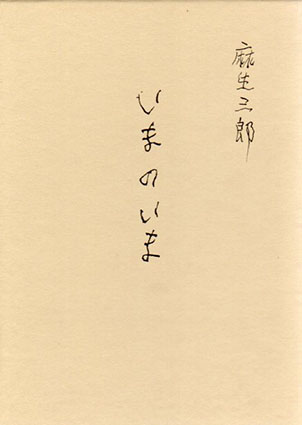 麻生三郎
いまのいま